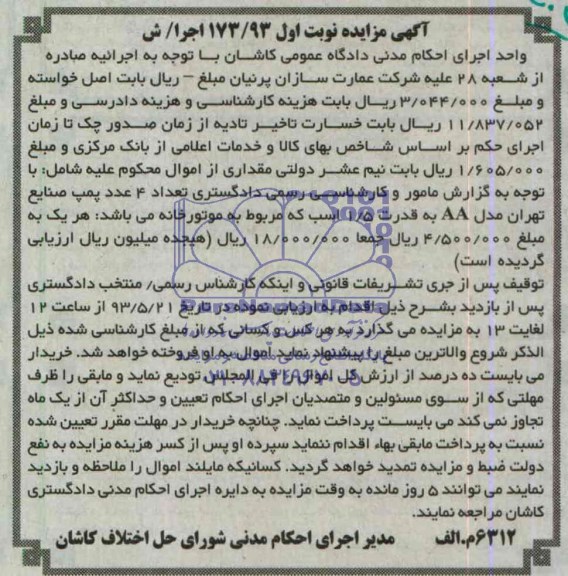 آگهی مزایده نوبت اول ۱۷۳/۹۳ اجرا/ ش
واحد اجرای احکام مدنی دادگاه عمومی کاشان با توجه به اجرائیه صادره
از شعبه ۲۸ علیه شرکت عمارت سازان پرنیان مبلغ – ریال بابت اصل خواسته
و مبلغ ۳/۰۴۴/۰۰۰ ریال بابت هزینه کارشناسی و هزینه دادرسی و مبلغ
۱۱/۸۳۷/۰۵۲ ریال بابت خسارت تاخیر تادیه از زمان صدور چک تا زمان
اجرای حکم بر اساس شاخص بهای کالا و خدمات اعلامی از بانک مرکزی و مبلغ
۱/۶۰۵/۰۰۰ ریال بابت نیم عشر دولتی مقداری از اموال محکوم علیه شامل: با
توجه به گزارش مامور و کارشناسی رسمی دادگستری تعداد ۴ عدد پمپ صنایع
تهران مدل AA به قدرت ۱/۵ اسب که مربوط به موتورخانه می باشد: هر یک به
مبلغ ۴/۵۰۰/۰۰۰ ریال جمعا ۱۸/۰۰۰/۰۰۰ ریال (هیجده میلیون ریال ارزیابی
گردیده است)
توقیف پس از جری تشریفات قانونی و اینکه کارشناس رسمی/ منتخب دادگستری
پس از بازدید بشرح ذیل اقدام به ارزیابی نموده در تاریخ ۹۳/۵/۲۱ از ساعت ۱۲
لغایت ۱۳ به مزایده می گذارد به هر کس و کسانی که از مبلغ کارشناسی شده ذیل
الذکر شروع والاترین مبلغ را پیشنهاد نماید اموال به او فروخته خواهد شد. خریدار
می بایست ده درصد از ارزش کل اموال را فی المجلس تودیع نماید و مابقی را ظرف
مهلتی که از سوی مسئولین و متصدیان اجرای احکام تعیین و حداکثر آن از یک ماه
تجاوز نمی کند می بایست پرداخت نماید. چنانچه خریدار در مهلت مقرر تعیین شده
نسبت به پرداخت مابقی بهاء اقدام ننماید سپرده او پس از کسر هزینه مزایده به نفع
دولت ضبط و مزایده تمدید خواهد گردید. کسانیکه مایلند اموال را ملاحظه و بازدید
نمایند می توانند ۵ روز مانده به وقت مزایده به دایره اجرای احکام مدنی دادگستری
کاشان مراجعه نمایند.
۶۳۱۲م.الف مدیر اجرای احکام مدنی شورای حل اختلاف کاشان